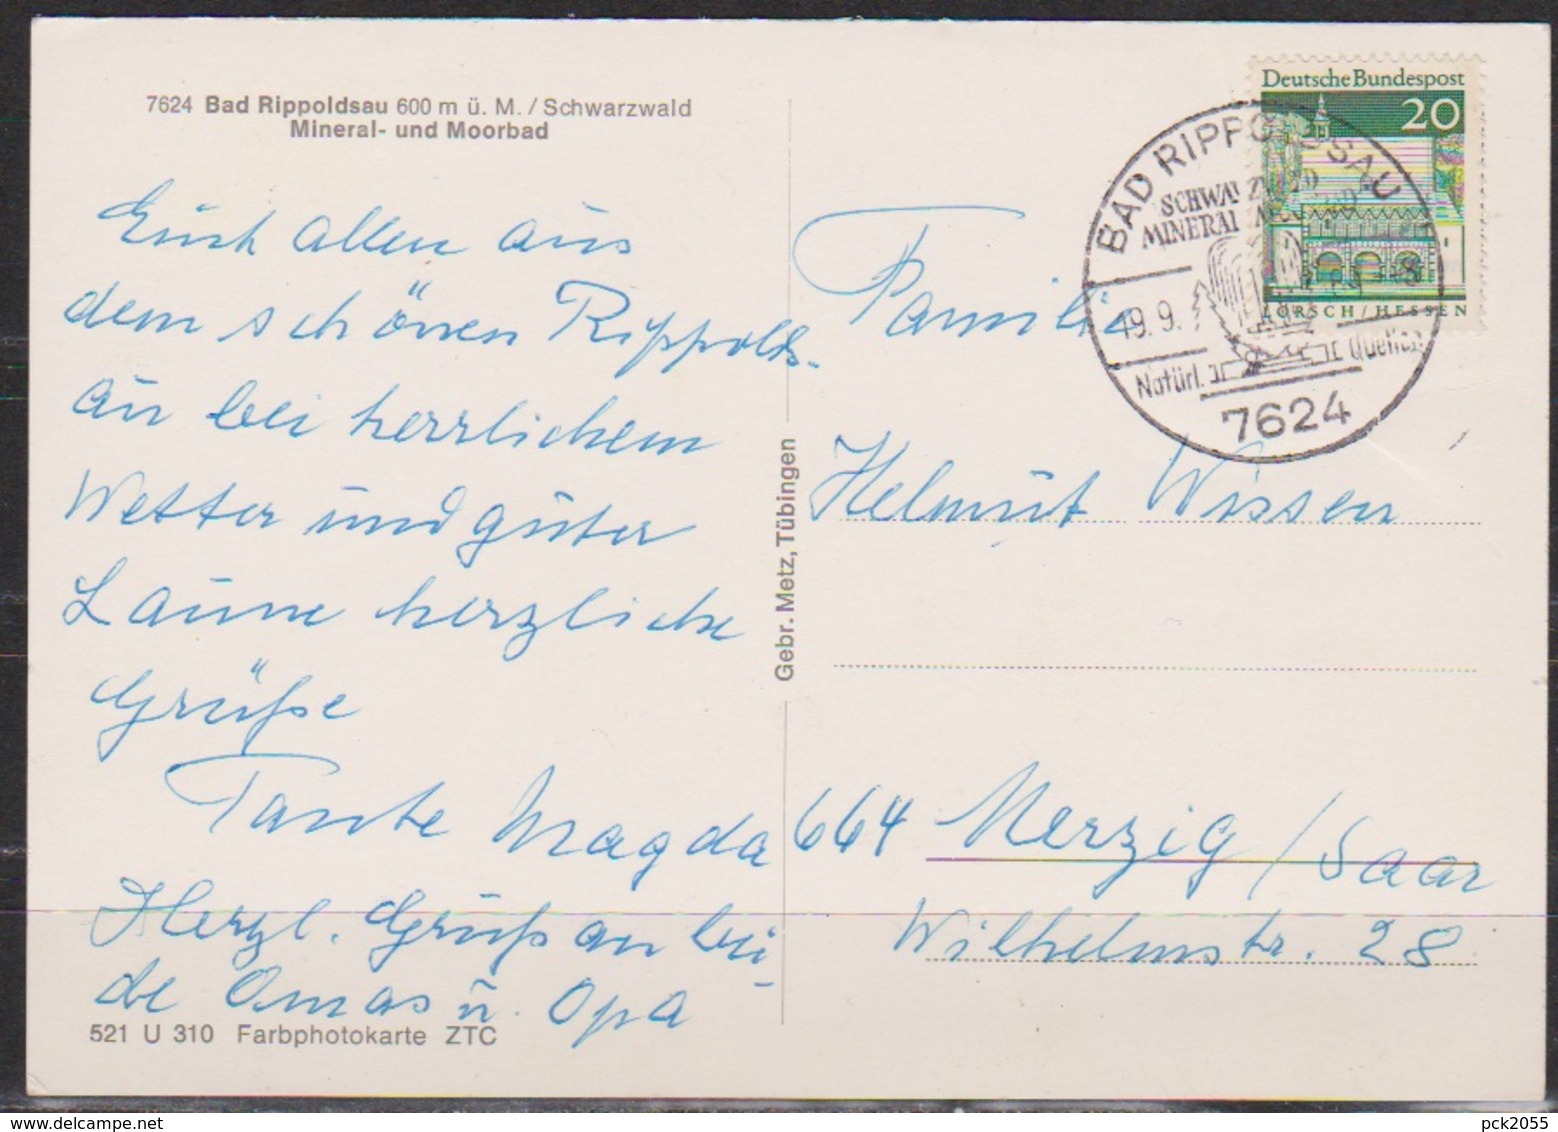 7624 Bad Rippoldsau 600 m ü. M. / Schwarzwald
Mineral- und Moorbad
Euch allen aus
dem schönen Rippolds-
au bei herrlichem
Wetter und guter
Laune herzliche
Grüße
Tante Magda
Herzl. Gruß an bei-
de Omas u. Opa
521 U 310 Farbphotokarte ZTC
Gebr. Metz, Tübingen
Deutsche Bundespost
20
LORSCH/HESSEN
BAD RIPPOLDSAU
MINERAL
19. 9.
Natürl. Quellen
7624
Familie
Helmut Wissen
664 Merzig/Saar
Wilhelmstr. 28
pck2055